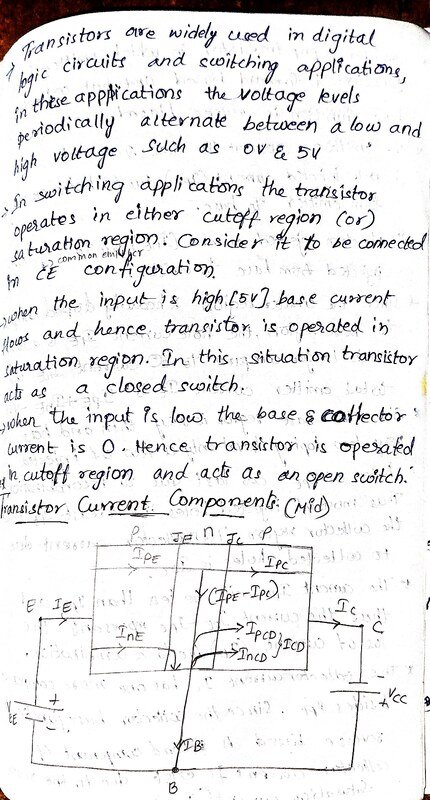 Transistors are widely used in digital
logic circuits and switching applications,
in these applications the voltage levels
periodically alternate between a low and
high voltage such as 0V & 5V
In switching applications the transistor
operates in either cutoff region (or)
saturation region. Consider it to be connected
common emitter
in CE configuration.
when the input is high [5V] base current
flows and hence transistor is operated in
saturation region. In this situation transistor
acts as a closed switch.
when the input is low the base & collector
current is 0. Hence transistor is operated
in cutoff region and acts as an open switch.
Transistor Current Components. (Mid)
P JE n Jc P
IPE IPC
(IPE-IPC)
E IE Ic C
InE IPCO } ICO
InCO
VEE + - - + VCC
IB
B